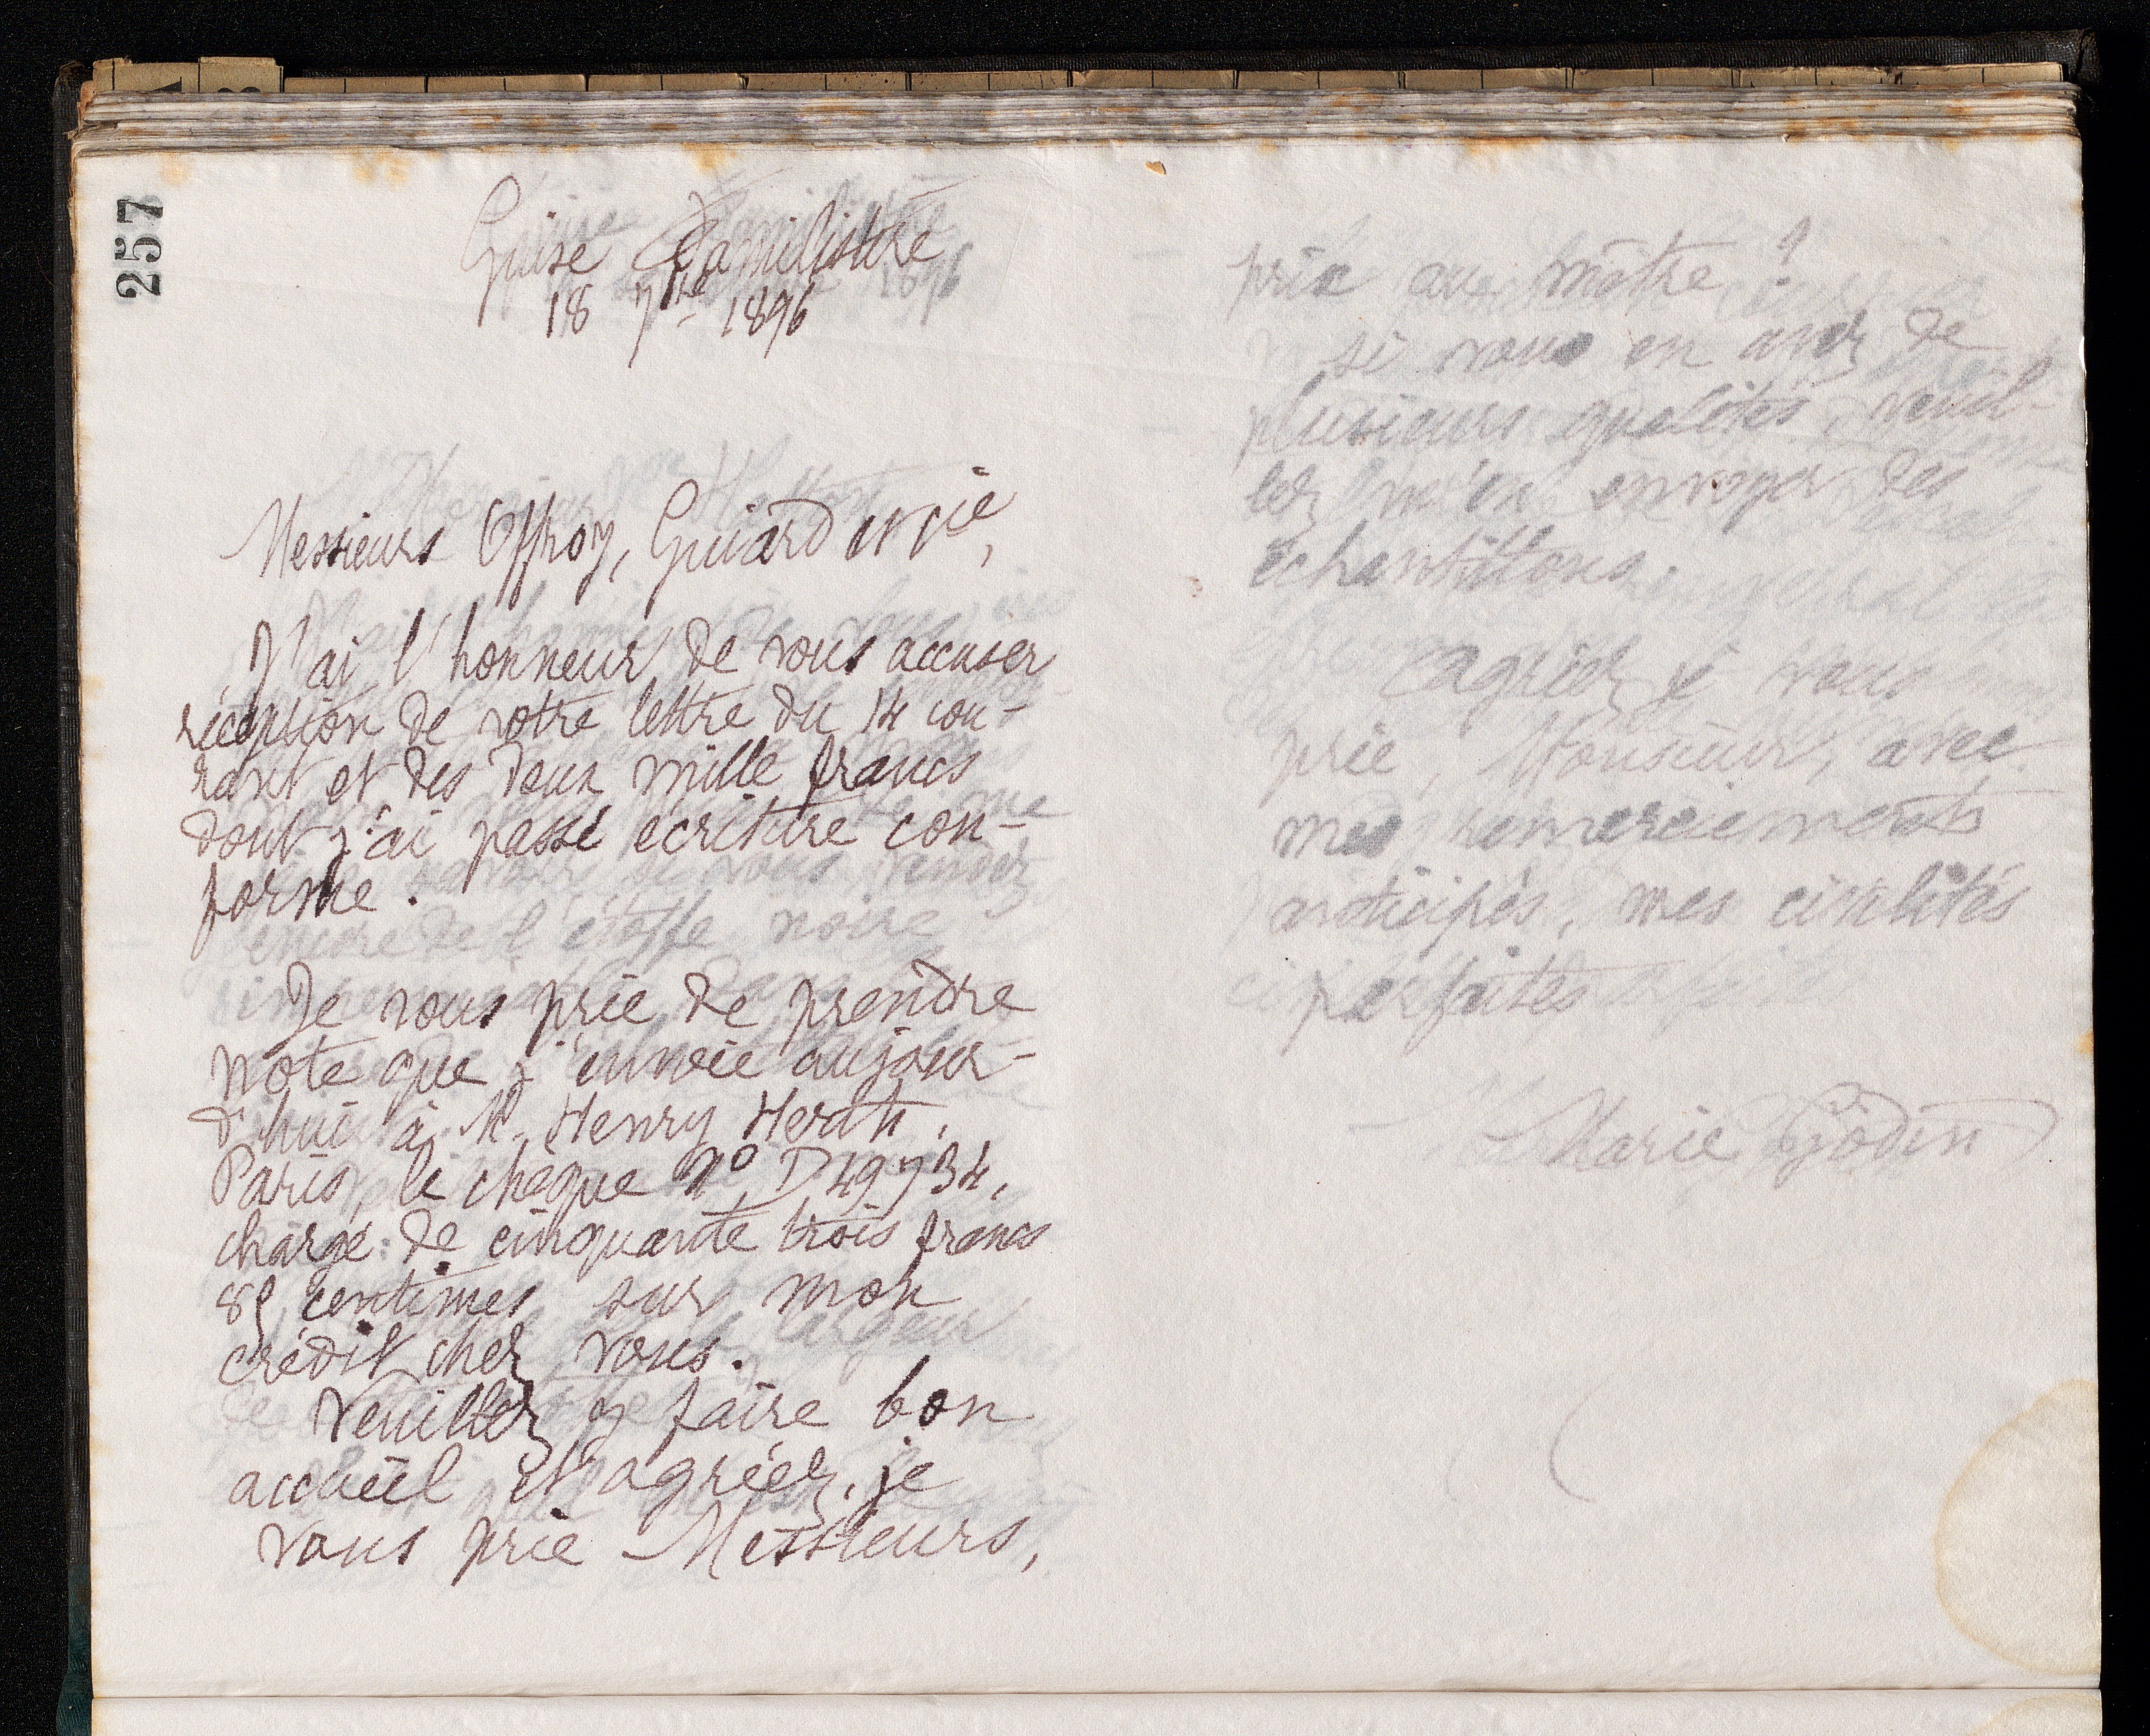 257
Guise Familistère
18 7bre 1896
Messieurs Offroy, Guiard et Cie,
J'ai l'honneur de vous accuser
réception de votre lettre du 14 cou-
rant et des deux mille francs
dont j'ai passé écriture con-
forme.
Je vous prie de prendre
note que j'envoie aujour-
d'hui à M. Henry
Paris, le chèque No D 49734,
chargé de cinquante trois francs
85 centimes sur mon
crédit chez vous.
Veuillez y faire bon
accueil et agréer, je
vous prie Messieurs,
prix au mètre ?
si vous en avez de
plusieurs qualités, veuil-
lez m'en envoyer des
échantillons.
agréez je vous
prie, Monsieur, avec
mes remerciements
anticipés, mes civilités
parfaites
Marie Godin